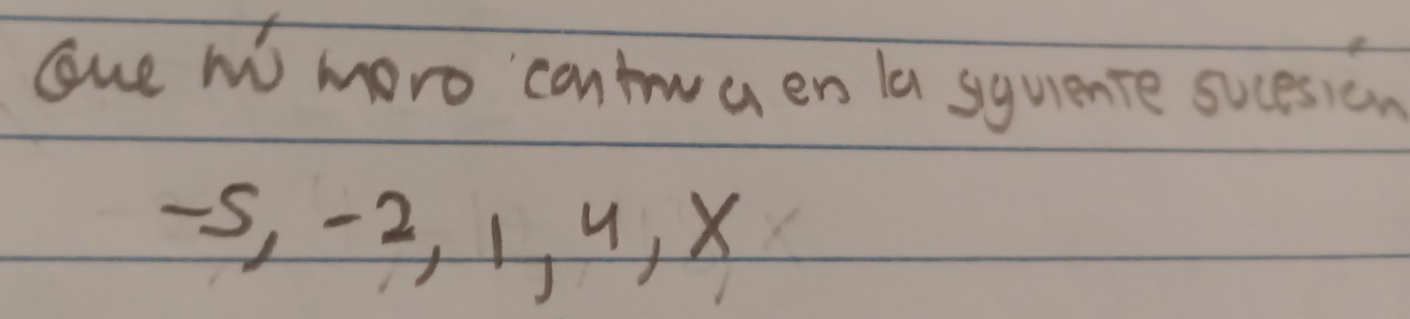 Que número continua en la siguiente sucesión
-5, -2, 1, 4, X